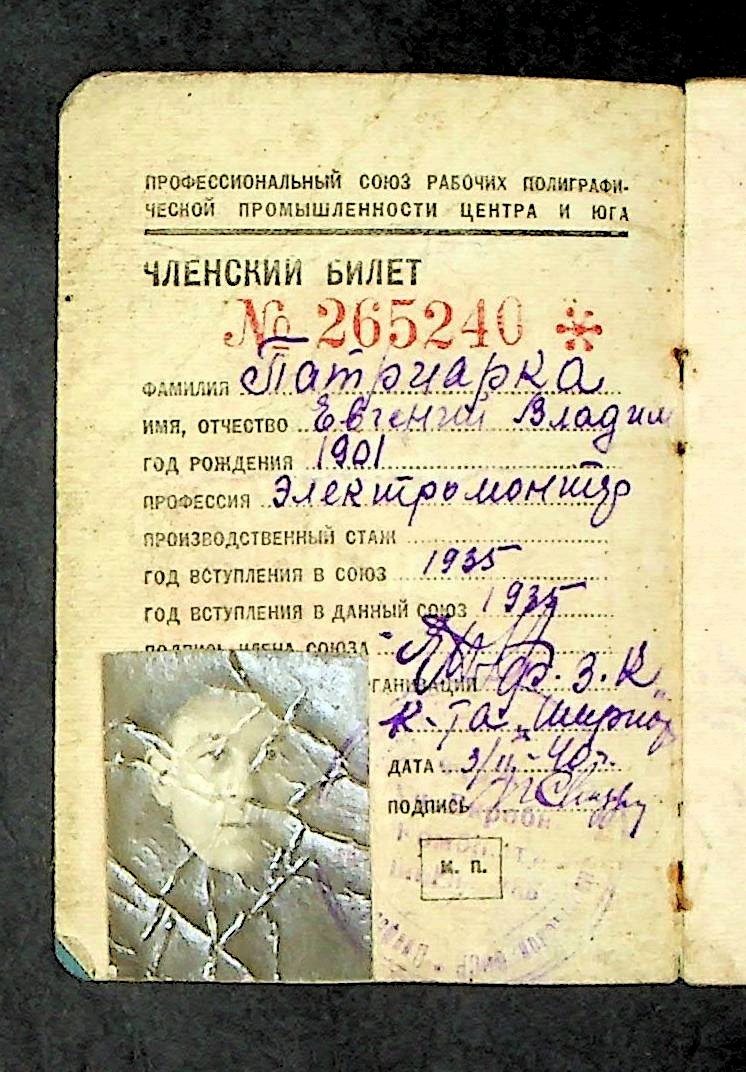 ПРОФЕССИОНАЛЬНЫЙ СОЮЗ РАБОЧИХ ПОЛИГРАФИ-
ЧЕСКОЙ ПРОМЫШЛЕННОСТИ ЦЕНТРА И ЮГА
ЧЛЕНСКИЙ БИЛЕТ
№ 265240 *
ФАМИЛИЯ Патриарка
ИМЯ, ОТЧЕСТВО Евгений Владим
ГОД РОЖДЕНИЯ 1901
ПРОФЕССИЯ Электромонтер
ПРОИЗВОДСТВЕННЫЙ СТАЖ
ГОД ВСТУПЛЕНИЯ В СОЮЗ 1935
ГОД ВСТУПЛЕНИЯ В ДАННЫЙ СОЮЗ 1935
ПОДПИСЬ ЧЛЕНА СОЮЗА
ГАНИЗАЦИИ Ф.З.К
К-та
ДАТА 3/II-40г.
ПОДПИСЬ
М. П.